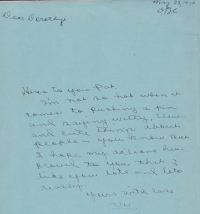 Dear Dorothy:
Here's to you Pat.
I'm not so hot when it
comes to pushing a pen
and saying witty, clever
and cute things about
people you know. But
I hope my actions have
proved to you that I
like you lots and lots
really
Yours with love